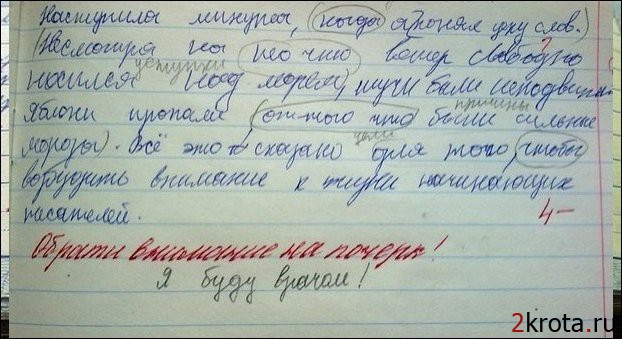 Наступила минута, (когда я понял цену слов.)
(Несмотря на то что ветер свободно
уступки
носился над морем, тучи были неподвижны
причины
Яблони пропали, (оттого что были сильные
цели
морозы). Всё это сказано для того, чтобы
возбудить внимание к жизни начинающих
писателей. 4-
Обрати внимание на почерк!
Я буду врачом!
2krota.ru